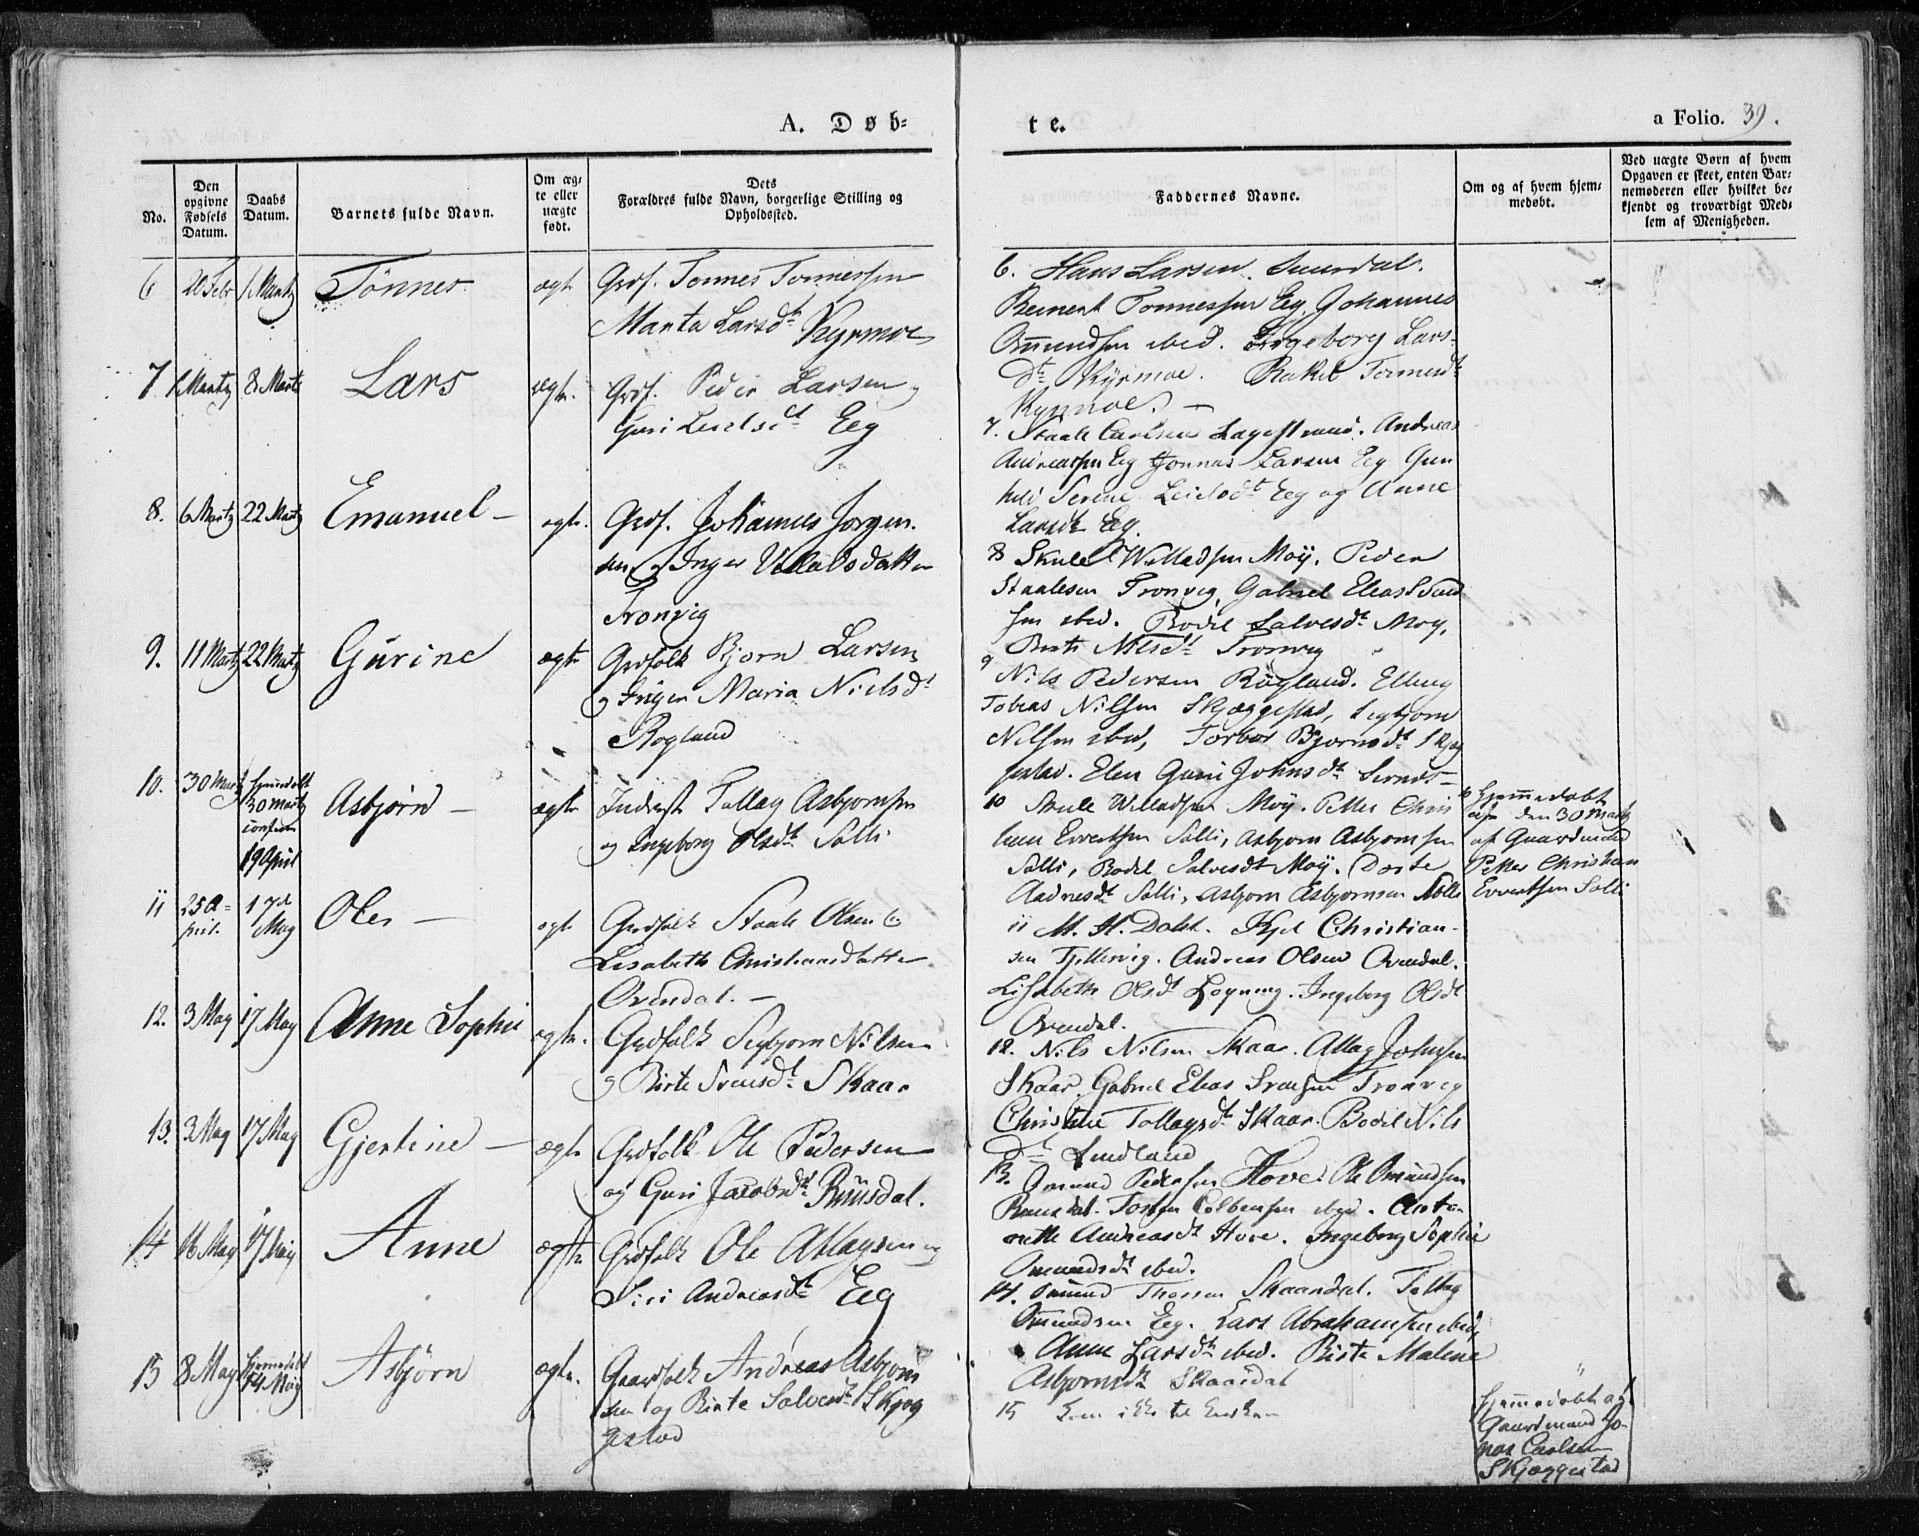 A. Døb-
te.
a Folio. 39.
No.
Den opgivne Fødsels Datum.
Daabs Datum.
Barnets fulde Navn.
Om ægte eller uægte født.
Dets Forældres fulde Navn, borgerlige Stilling og Opholdssted.
Faddernes Navne.
Om og af hvem hjemmedøbt.
Ved uægte Børn af hvem Opgaven er skeet, enten Barnemoderen eller hvilket bekjendt og troværdigt Medlem af Menigheden.
6 20 Febr 1 Martz Tönnes ægte Grdf. Tonnes Tonnessen
Marta Larsdt Kyrmoe
6. Hans Larsen
Berent Tonnessen Eeg. Johannes
Omundsen ibid. Ingeborg Lars-
Dt Kyrmoe. Rakel Tonnesdt
Kyrmoe. —
7 1 Martz 8 Martz Lars ægte. Grdf. Peder Larsen og
Guri Leielsdt Eeg
7. Staale Carlsen Lagestrand. Andreas
Andreassen Eeg Jonnas Larsen Eeg Gun
hild Serine Leielsdt Eeg og Anne
Larsdt Eeg.
8. 6 Martz 22 Martz Emanuel — ægte. Grdf. Johannes Jorgen.
sen og Inger Villadsdatter
Tronvig
8 Skule Willadsen Moÿ. Peder
Staalesen Tronvig, Gabriel Elias Svend
sen ibid. Bodil Salvesdt Moy.
Berte Nilsdt Tronvig
9. 11 Martz 22 Martz Gurine ægte Grdfolk Bjorn Larsen
og Inger Maria Nielsdt
Rogland
9 Nils Pedersen Rögland. Elling
Tobias Nilsen Skjæggestad, Segbjorn
Nilsen ibid, Torbor Bjornsdt Skjeg
gestad. Elen Guri Johnsdt
10. 30 Martz Hjemdøbt 30 Martz confirm 19 April Asbjørn — ægte Inderst Tollag Asbjornsen
og Ingeborg Olsdt Solli
10 Skule Willadsen Moÿ. Petter Chris
tian Evertsen Solli, Asbjorn Asbjornsen
Solli, Bodil Salvesdt Moÿ. Dorte
Aadnesdt Solli, Asbjorn Asbjornsen Solli
10 Hjemmedøbt
den 30 Martz
af Gaardmand
Petter Christian
Evertsen Solli
11 25 A-pril. 17d May Ole — ægte Grdfolk Staale Olsen &
Lisabeth Christiansdatter
Ovendal. —
11 M. H. Dahl. Kjel Christian-
sen Fjellivig. Andreas Olsen Ovendal.
Lisabeth Olsdt Logning. Ingeborg Olsdt
Ovendal.
12. 3 May 17 May Anne Sophie ægte. Grdfolk Segbjorn Nilsen
og Birte Svensdt Skaar
12. Nils Nilsen Skaar. Atlag Johnsen
Skaar, Gabriel Elias Svensen Tronvig
Christine Tollagsdt Skaar. Bodil Nils
Dt Lindland
13. 3 May 17 May Gjertine — ægte Grdfolk Ole Pedersen
og Guri Jacobsdt Rúnsdal.
13. Omund Pedersen Hove. Ole Omundsen
Runsdal. Tosten Colbensen ibid. Anto-
nette Andreasdt Hove. Ingeborg Sophie
Omundsdt ibid.
14 16 May 17 May Anne ægte Grdfolk Ole Atlagsen og
Siri Andreasdt Eeg
14. Omund Thorsen Skaandal. Tollag
Omundsen Eeg. Lars Abrahamsen ibid,
Anne Larsdt ibid. Birte Malene
Asbjornsdt Skaardal
15 8 May Hjemmedøbt 14 May Asbjörn ægte. Gaardfolk Andreas Asbjorn
sen og Birte Salvesdt Skjeg
gestad
15 Kom ikke til Kirken
Hjemmedøbt af
Gaardmand Jo-
nas Carlsen
Skjæggestad